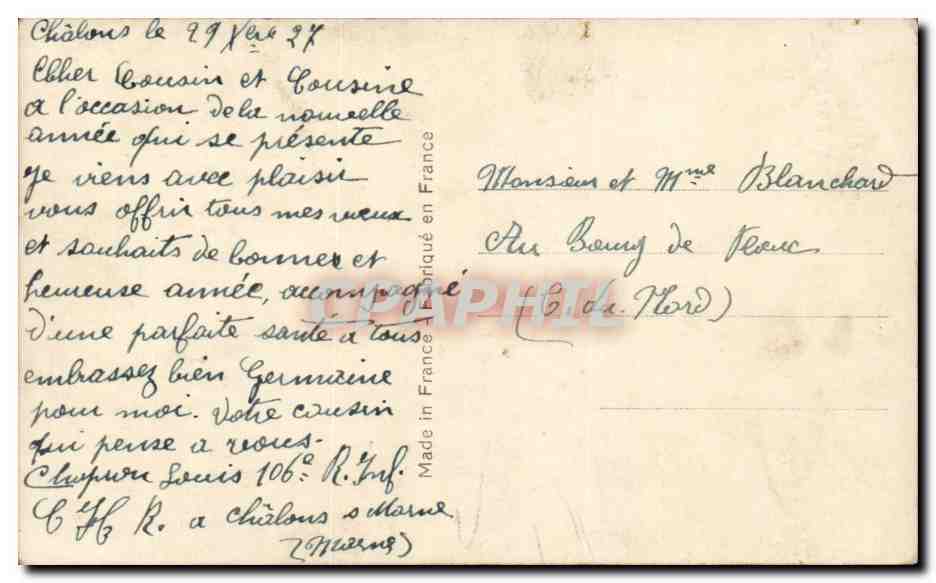 Châlons le 29 Xbre 27
Cher Cousin et Cousine
a l'occasion de la nouvelle
année qui se présente
je viens avec plaisir
vous offrir tous mes vœux
et souhaits de bonne et
heureuse année, accompagné
d'une parfaite santé à tous
embrassez bien Germaine
pour moi. Votre cousin
qui pense a vous.
Louis 106e R. Inf.
C H R. a Châlons s Marne
(Marne)
Made in France - Fabriqué en France
Monsieur et Mme Blanchard
Au Bourg de
(C du Nord)
CPAPHIL